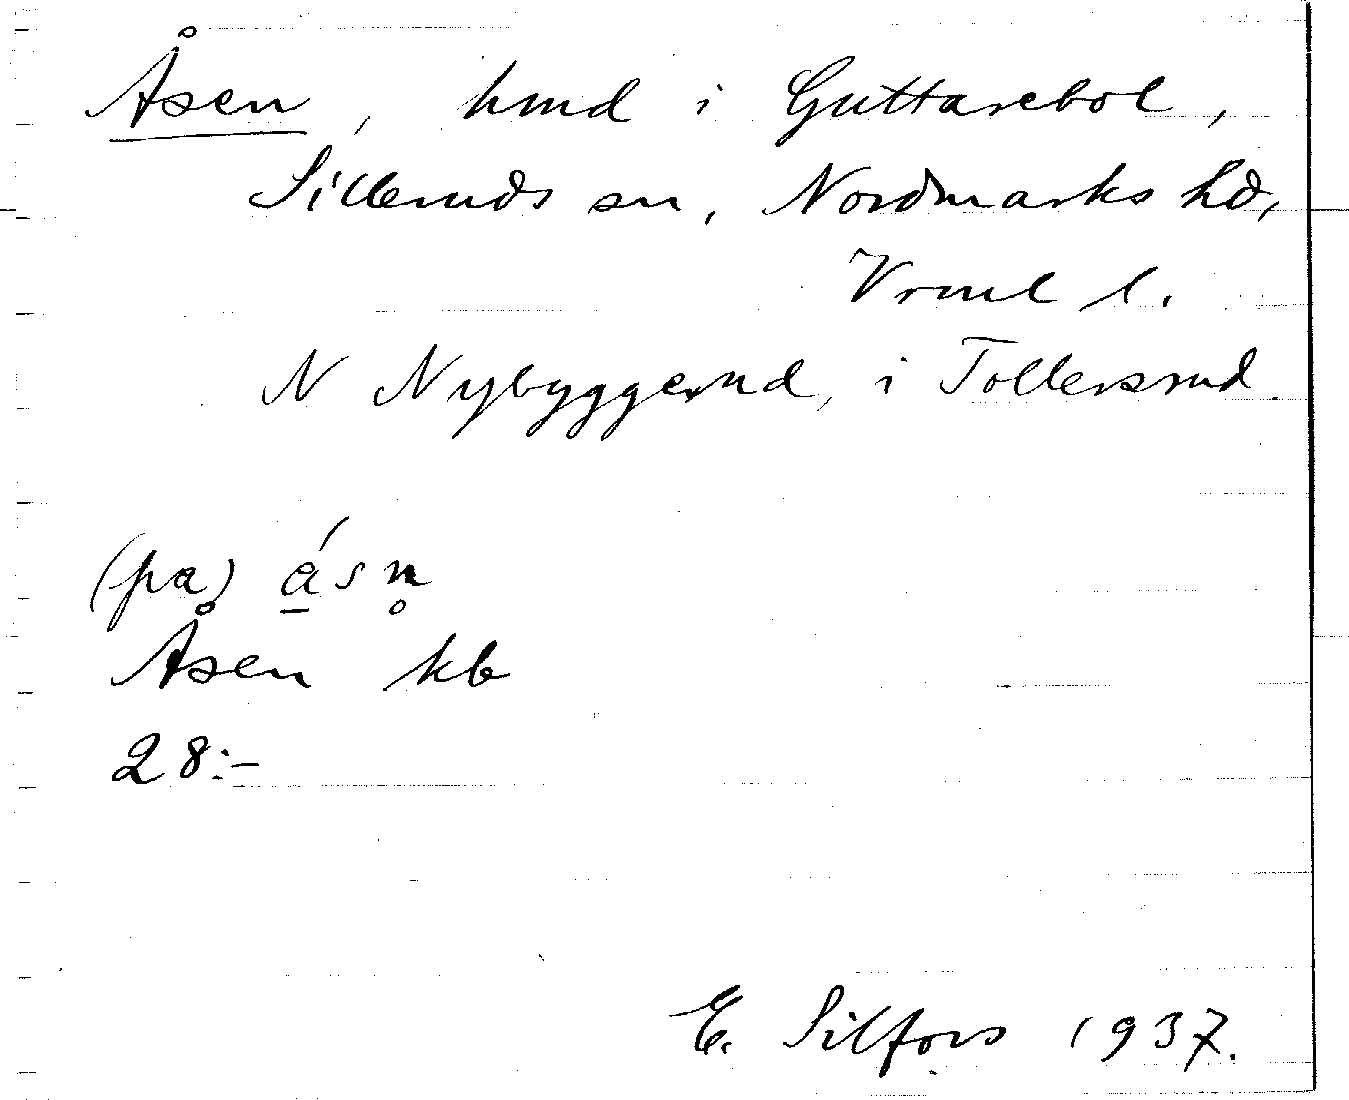 Åsen, hmd i Guttarebol,
Silleruds sn, Nordmarks hd,
Vrml l.
N Nybyggerud, i Tollersrud.
(pa) á̲sn̥
Åsen kb
28:-
E. Silfors 1937.